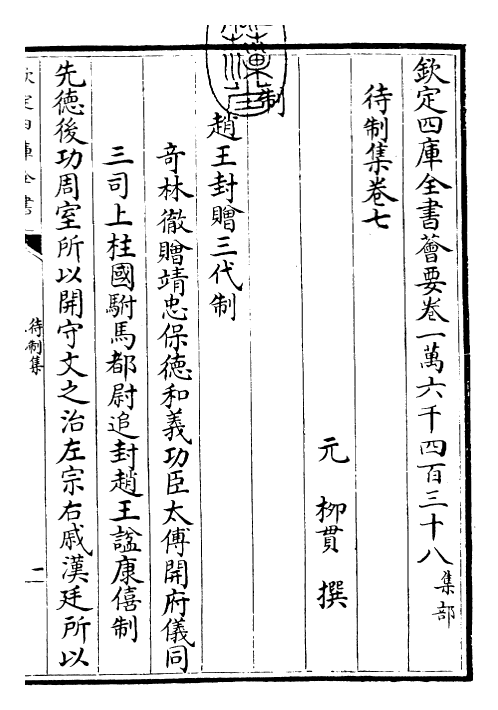 欽定四庫全書薈要卷一萬六千四百三十八集部
待制集卷七
元 柳貫 撰
制
趙王封贈三代制
竒林徹贈靖忠保德和義功臣太傅開府儀同
三司上柱國駙馬都尉追封趙王諡康僖制
先德後功周室所以開守文之治左宗右戚漢廷所以
欽定四庫全書
待制集